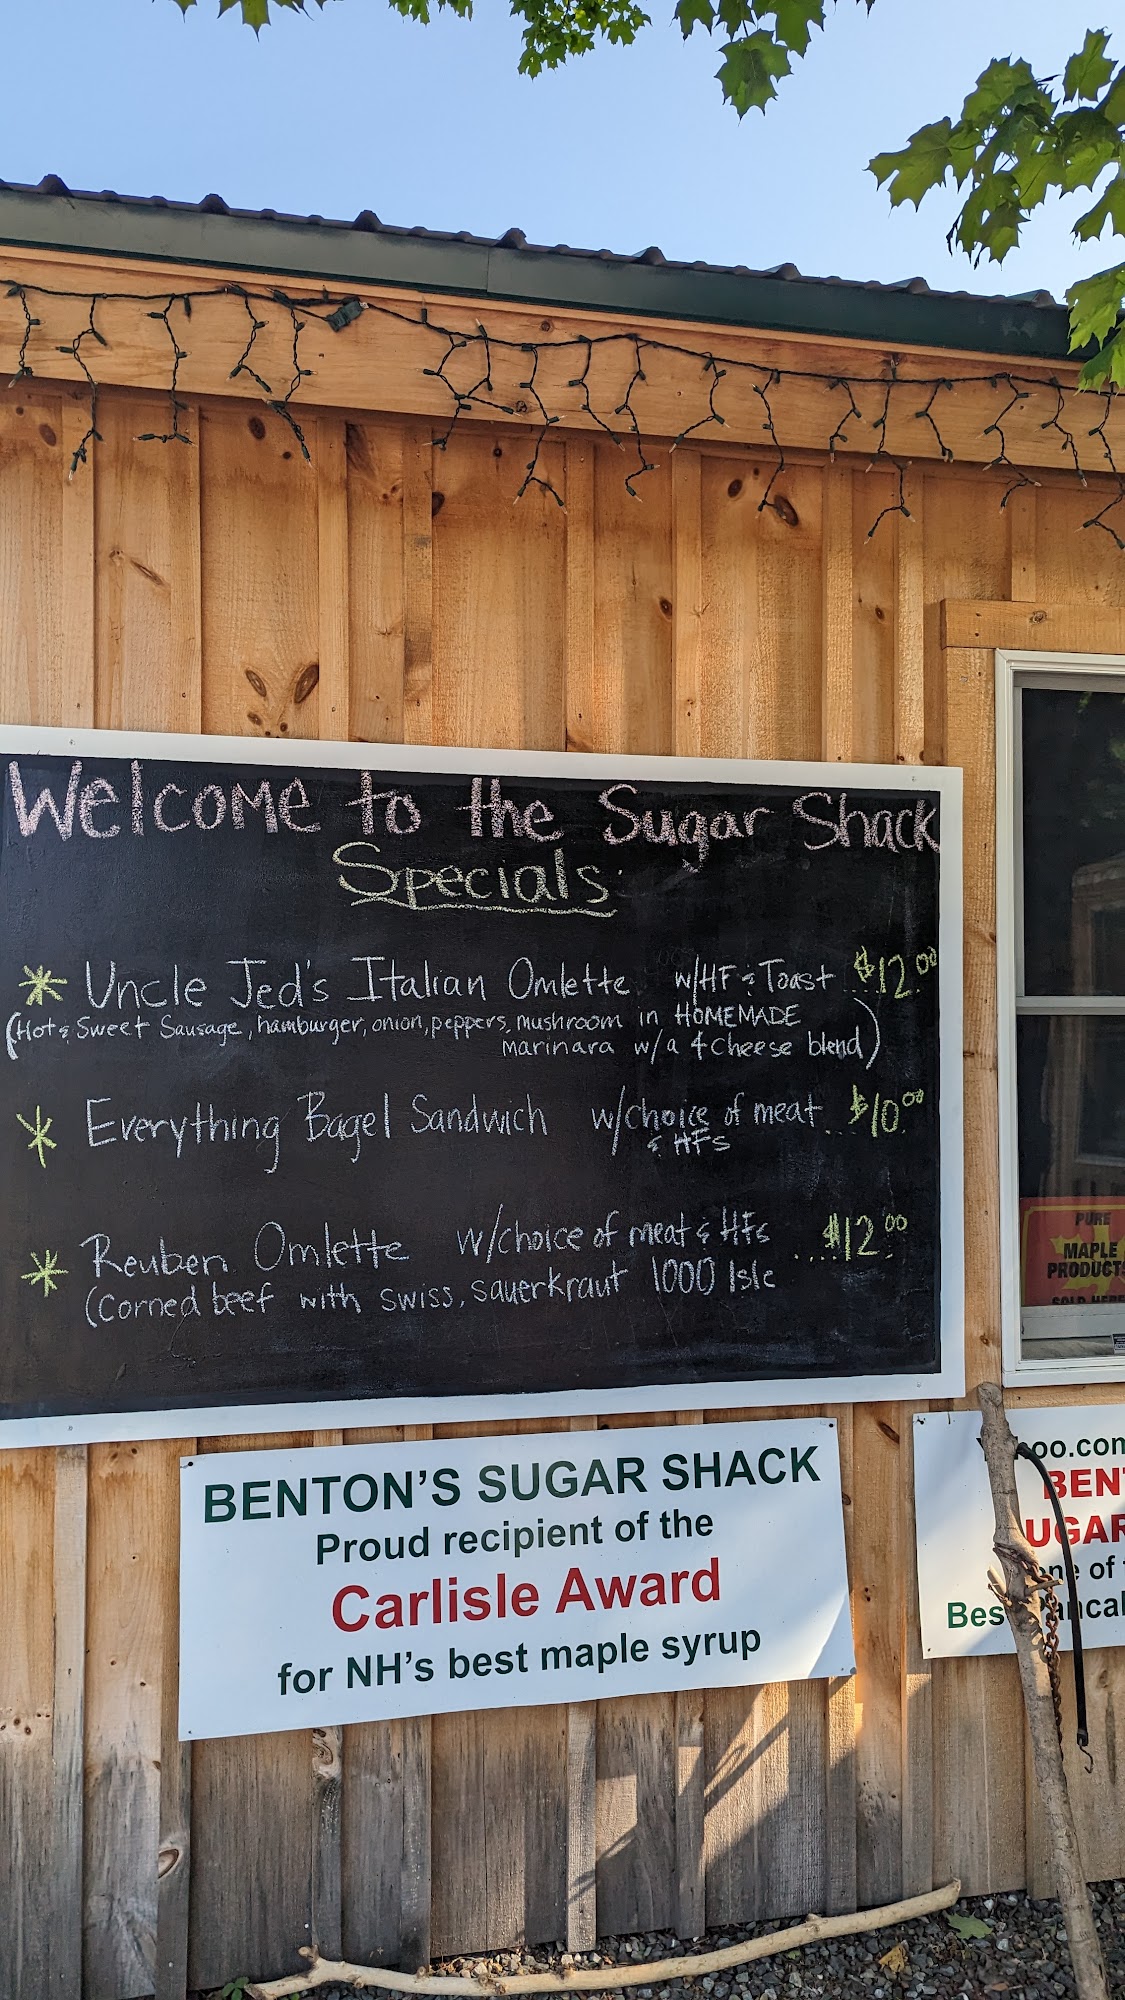 Welcome to the Sugar Shack
Specials
* Uncle Jed's Italian Omlette w/HF & Toast ... $12.00
(Hot & Sweet Sausage, hamburger, onion, peppers, mushroom in HOMEMADE
marinara w/a 4 cheese blend)
* Everything Bagel Sandwich w/choice of meat ... $10.00
& HFs
* Reuben Omlette w/choice of meat & HFs ..... $12.00
(Corned beef with swiss, sauerkraut 1000 Isle
PURE
MAPLE
PRODUCTS
SOLD HERE
BENTON'S SUGAR SHACK
Proud recipient of the
Carlisle Award
for NH's best maple syrup
oo.com
BEN
UGAR
one of
Bes ancak